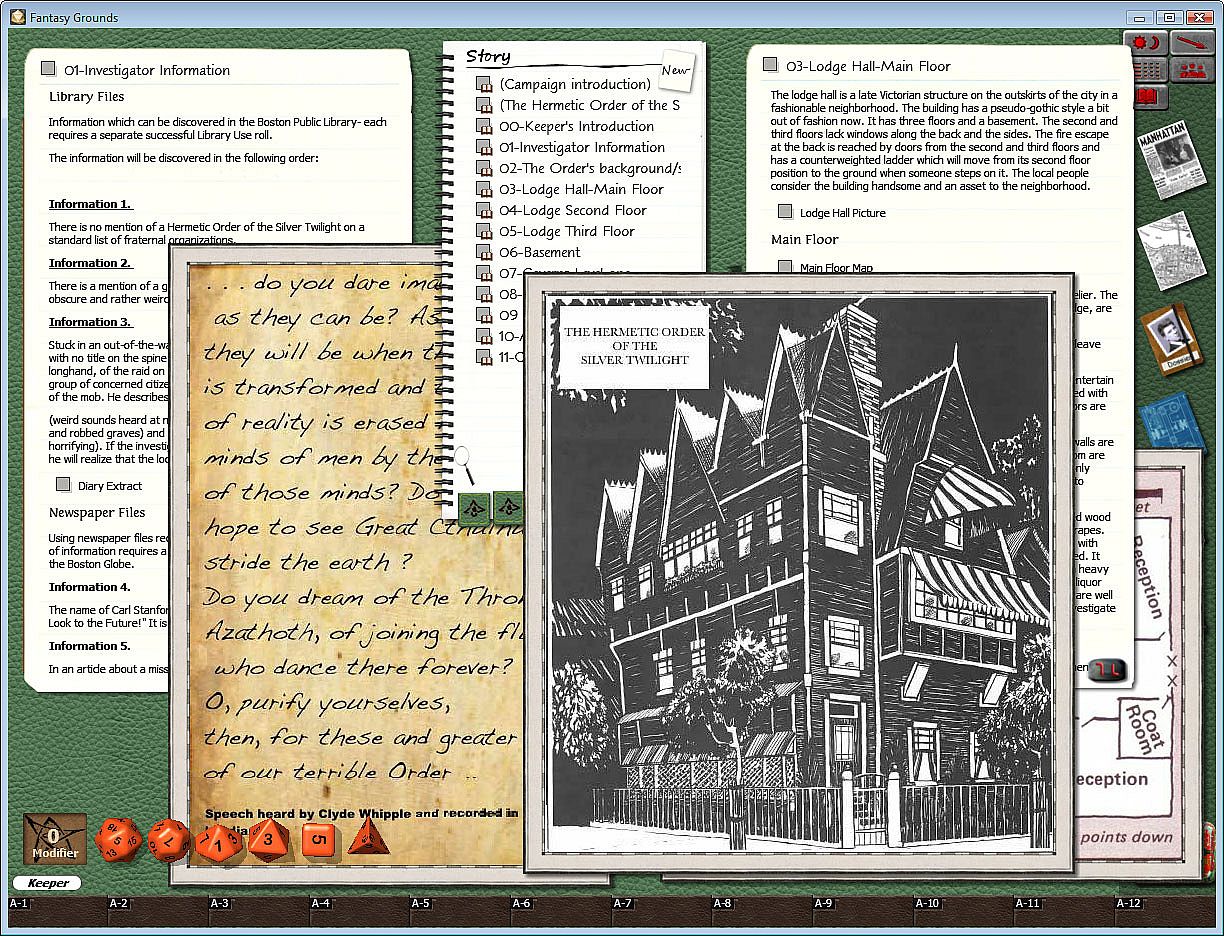 Fantasy Grounds
01-Investigator Information
Library Files
Information which can be discovered in the Boston Public Library- each
requires a separate successful Library Use roll.
The information will be discovered in the following order:
Information 1.
There is no mention of a Hermetic Order of the Silver Twilight on a
standard list of fraternal organizations.
Information 2.
There is a mention of a g
obscure and rather weird
Information 3.
Stuck in an out-of-the-wa
with no title on the spine
longhand, of the raid on
group of concerned citize
of the mob. He describes
(weird sounds heard at n
and robbed graves) and
horrifying). If the investi
he will realize that the loc
Diary Extract
Newspaper Files
Using newspaper files rec
of information requires a
the Boston Globe.
Information 4.
The name of Carl Stanfor
Look to the Future!" It is
Information 5.
In an article about a miss
. . . do you dare ima
as they can be? As
they will be when th
is transformed and
of reality is erased
minds of men by the
of those minds? Do
hope to see Great Cthulhu
stride the earth ?
Do you dream of the Thron
Azathoth, of joining the fl
who dance there forever?
O, purify yourselves,
then, for these and greater
of our terrible Order ..
Speech heard by Clyde Whipple and recorded in
Story
New
(Campaign introduction)
(The Hermetic Order of the S
00-Keeper's Introduction
01-Investigator Information
02-The Order's background/s
03-Lodge Hall-Main Floor
04-Lodge Second Floor
05-Lodge Third Floor
06-Basement
07-
08-
09
10-
11-
THE HERMETIC ORDER
OF THE
SILVER TWILIGHT
03-Lodge Hall-Main Floor
The lodge hall is a late Victorian structure on the outskirts of the city in a
fashionable neighborhood. The building has a pseudo-gothic style a bit
out of fashion now. It has three floors and a basement. The second and
third floors lack windows along the back and the sides. The fire escape
at the back is reached by doors from the second and third floors and
has a counterweighted ladder which will move from its second floor
position to the ground when someone steps on it. The local people
consider the building handsome and an asset to the neighborhood.
Lodge Hall Picture
Main Floor
Main Floor Map
elier. The
ge, are
leave
ntertain
ed with
ors are
walls are
om are
only
to
d wood
rapes.
with
ed. It
heavy
liquor
are well
vestigate
MANHATTAN
Dossier
et
Reception
X
X
Coat
Room
eception
points down
0
Modifier
5
2
1
3
5
Keeper
A-1 A-2 A-3 A-4 A-5 A-6 A-7 A-8 A-9 A-10 A-11 A-12